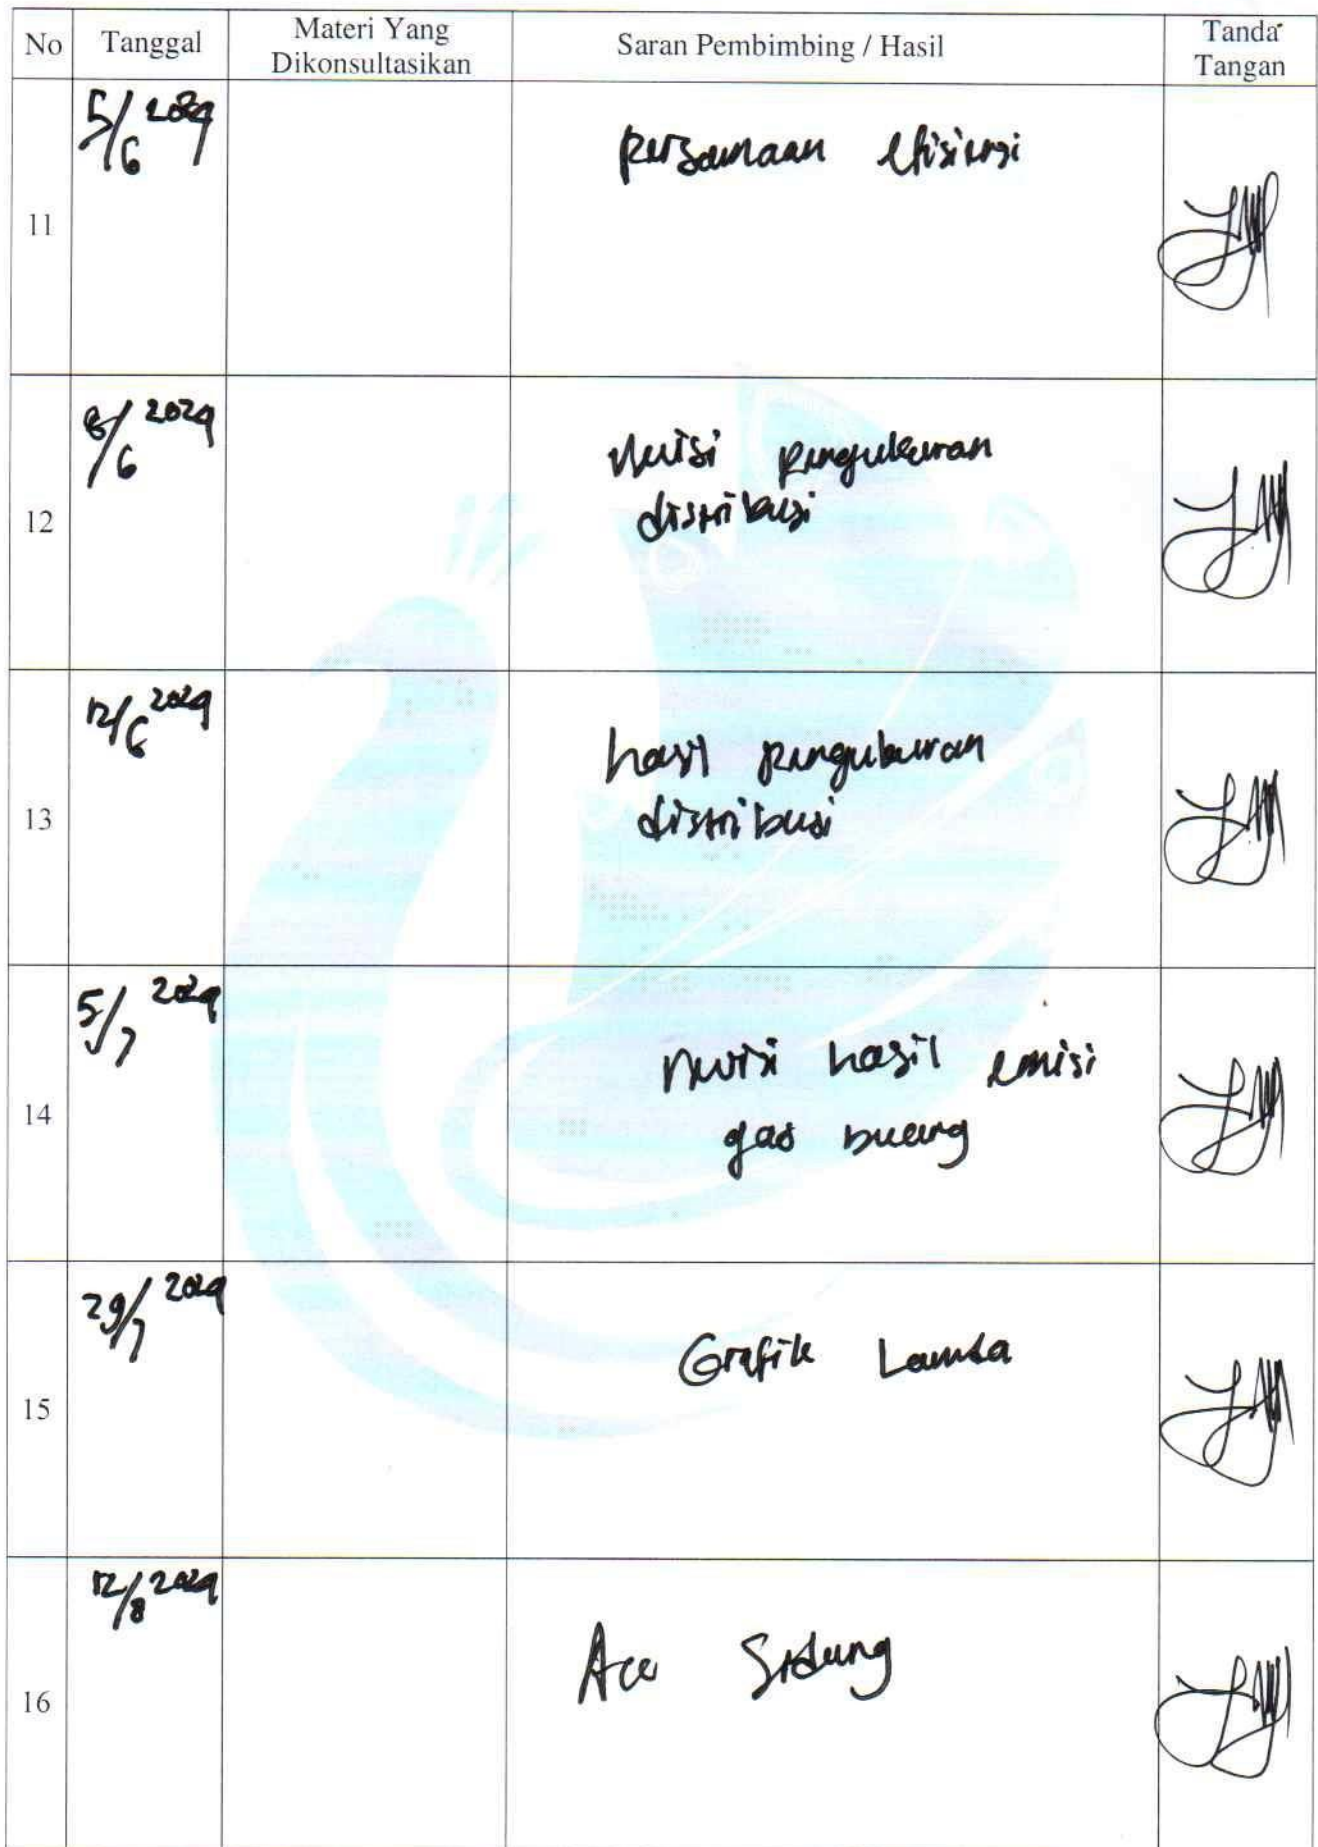 No Tanggal Materi Yang Dikonsultasikan Saran Pembimbing / Hasil Tanda Tangan
11 5/6 2024 persamaan efisiensi
12 8/6 2024 revisi pengukuran
distribusi
13 12/6 2024 hasil pengukuran
distribusi
14 5/7 2024 revisi hasil emisi
gas buang
15 29/7 2024 Grafik Lamda
16 12/8 2024 Acc Sidang